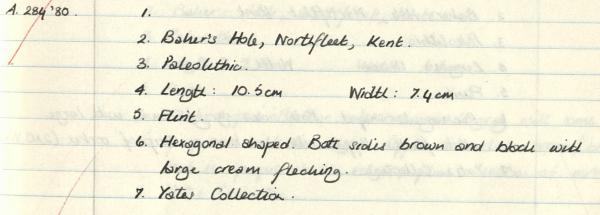 A. 284 '80. 1.
2. Baker's Hole, Northfleet, Kent.
3. Paleolithic.
4. Length: 10.5cm Width: 7.4cm
5. Flint.
6. Hexagonal shaped. Both sides brown and black with
large cream flecking.
7. Yates Collection.